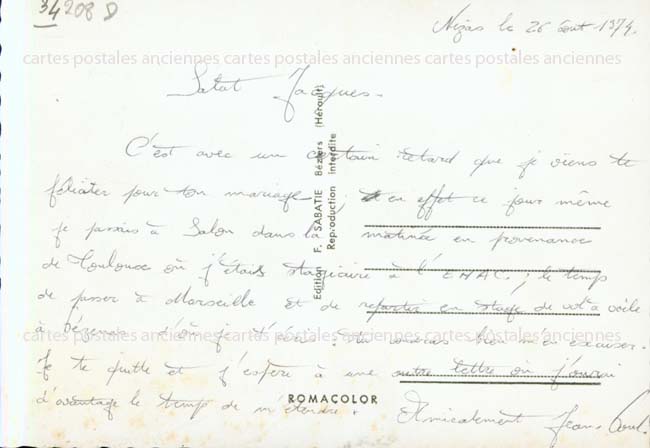 34208 D
Nizas le 26 août 1974.
cartes postales anciennes cartes postales anciennes cartes postales anciennes
Salut Jacques.
C'est avec un certain retard que je viens te
féliciter pour ton mariage ; en effet ce jour même
cartes postales anciennes cartes postales anciennes cartes postales anciennes
je passais à Salon dans la matinée en provenance
de Toulouse où j'étais stagiaire à l' ; le temps
de passer à Marseille et de repartir en stage de vol à voile
à Pézenas d'où je t'écris. Tu voudras bien m'en excuser.
cartes postales anciennes cartes postales anciennes cartes postales anciennes
Je te quitte et j'espère à une autre lettre où j'aurai
d'avantage le temps de m'étendre.
Amicalement Jean-
Edition F. SABATIE Béziers (Hérault)
Reproduction interdite
ROMACOLOR